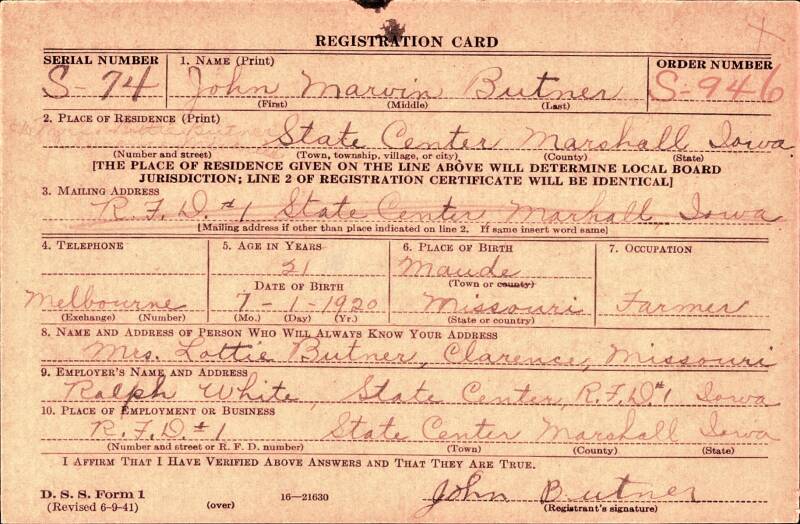 REGISTRATION CARD
SERIAL NUMBER 1. NAME (Print) ORDER NUMBER
S- 74 John Marvin Butner S-946
(First) (Middle) (Last)
2. PLACE OF RESIDENCE (Print)
State Center Marshall Iowa
(Number and street) (Town, township, village, or city) (County) (State)
[THE PLACE OF RESIDENCE GIVEN ON THE LINE ABOVE WILL DETERMINE LOCAL BOARD
JURISDICTION; LINE 2 OF REGISTRATION CERTIFICATE WILL BE IDENTICAL]
3. MAILING ADDRESS
R.F.D. #1 State Center Marhall, Iowa
[Mailing address if other than place indicated on line 2. If same insert word same]
4. TELEPHONE 5. AGE IN YEARS 6. PLACE OF BIRTH 7. OCCUPATION
21 Maude
(Town or county)
DATE OF BIRTH
Melbourne 7-1-1920 Missouri Farmer
(Exchange) (Number) (Mo.) (Day) (Yr.) (State or country)
8. NAME AND ADDRESS OF PERSON WHO WILL ALWAYS KNOW YOUR ADDRESS
Mrs. Lottie Butner, Clarence, Missouri
9. EMPLOYER'S NAME AND ADDRESS
Ralph White, State Center, R.F.D. #1 Iowa
10. PLACE OF EMPLOYMENT OR BUSINESS
R.F.D. #1 State Center Marshall Iowa
(Number and street or R. F. D. number) (Town) (County) (State)
I AFFIRM THAT I HAVE VERIFIED ABOVE ANSWERS AND THAT THEY ARE TRUE.
D. S. S. Form 1
(Revised 6-9-41) (over) 16—21630 John Butner
(Registrant's signature)